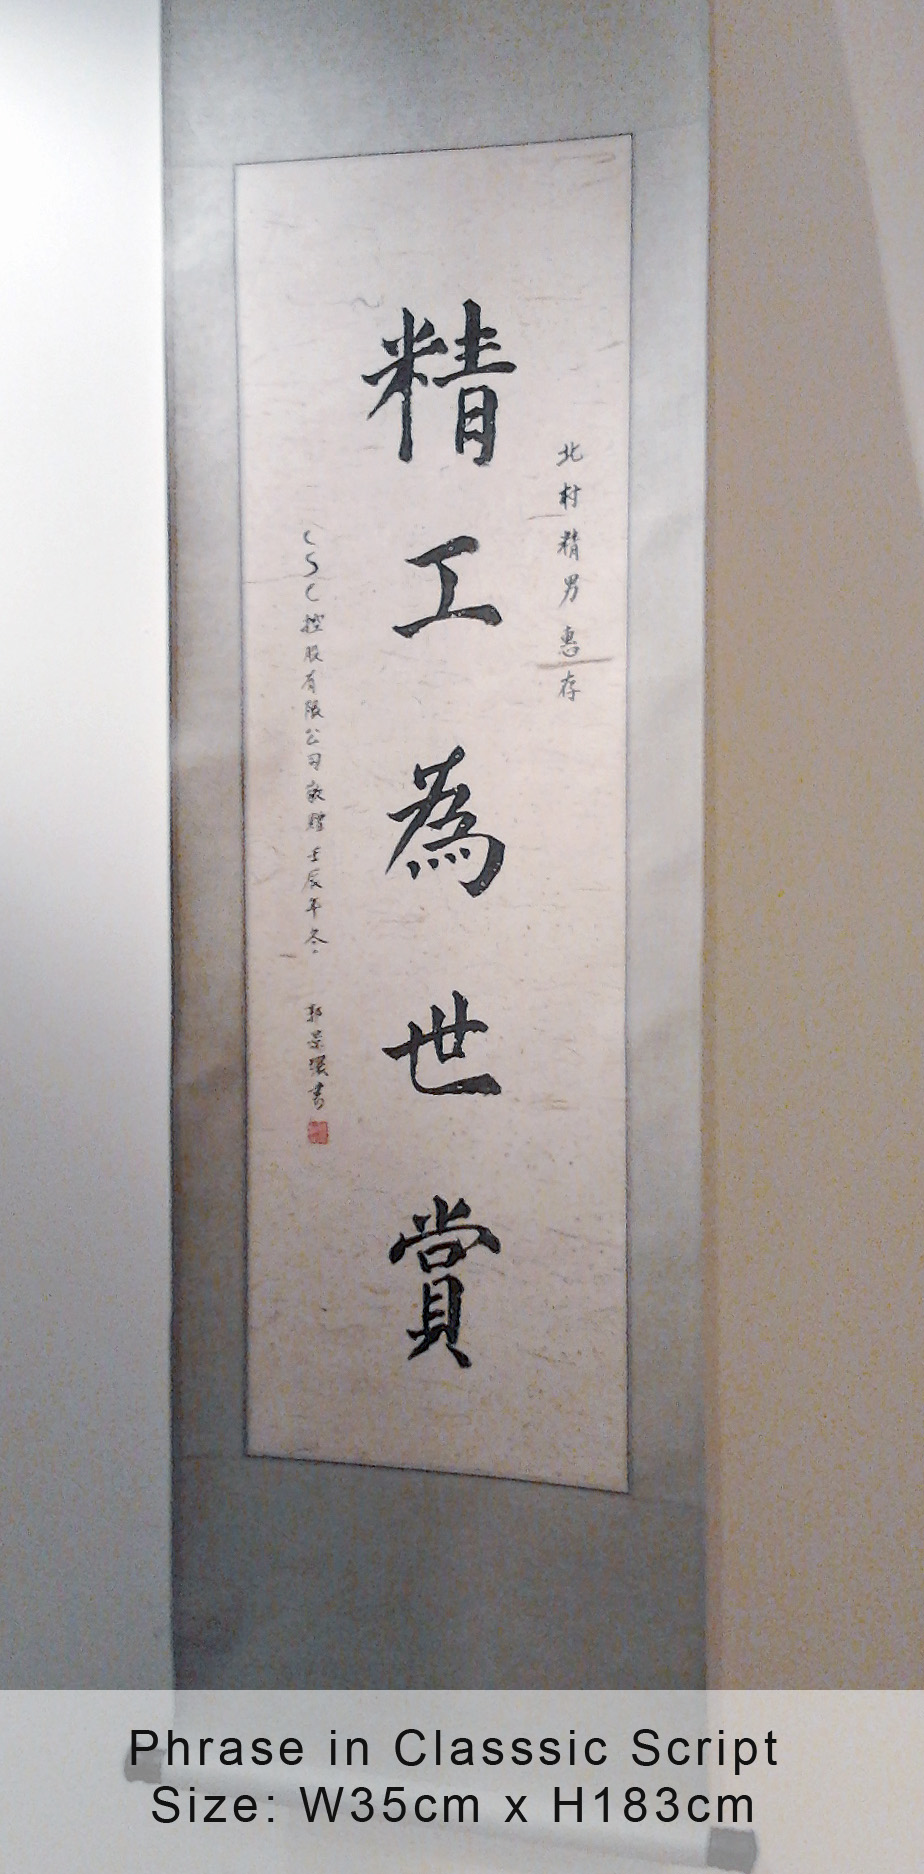 北村精男惠存
精工為世賞
CSC控股有限公司敬贈壬辰年冬
郭景環書
Phrase in Classsic Script
Size: W35cm x H183cm